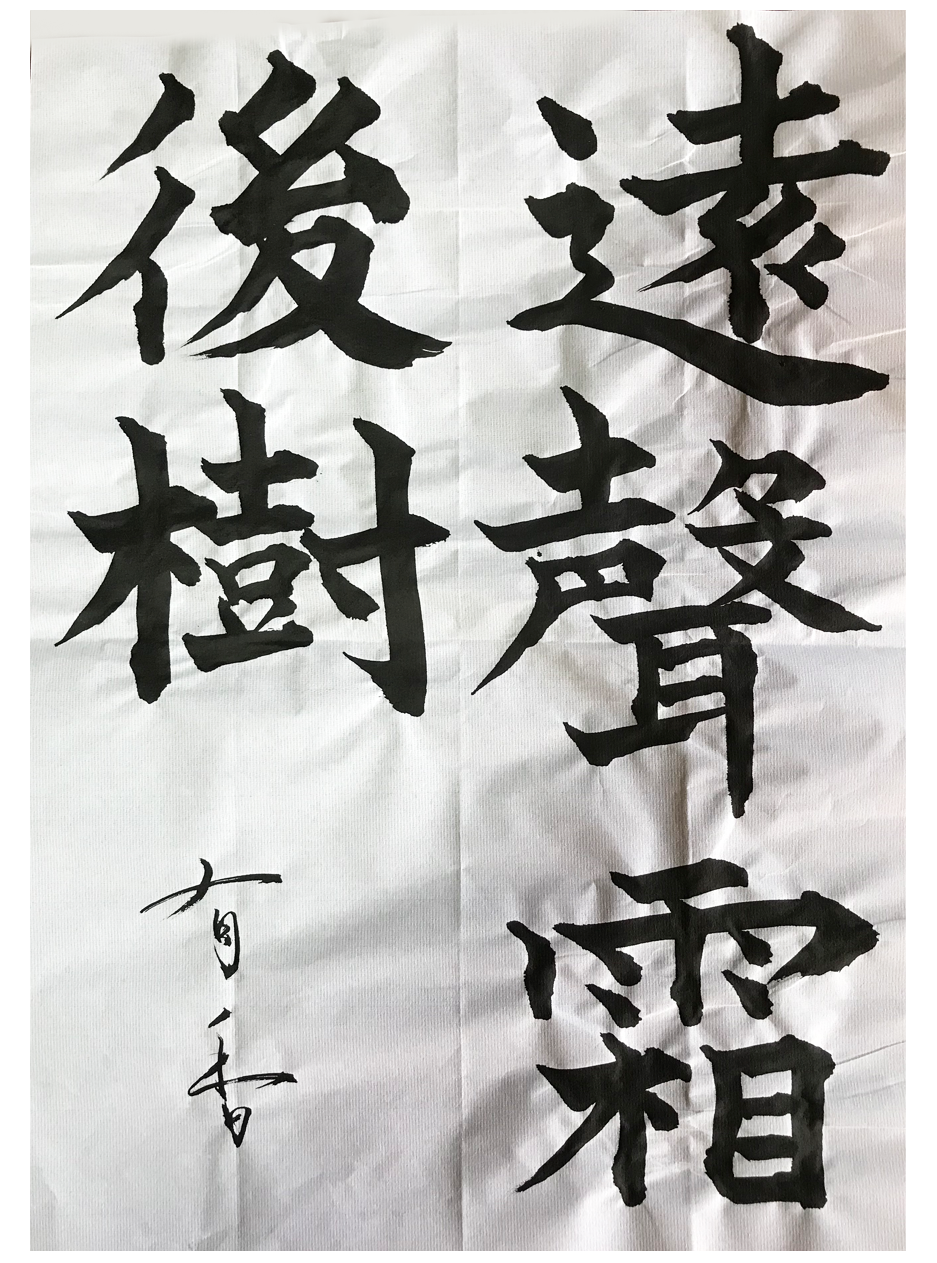 遠聲霜
後樹
有香